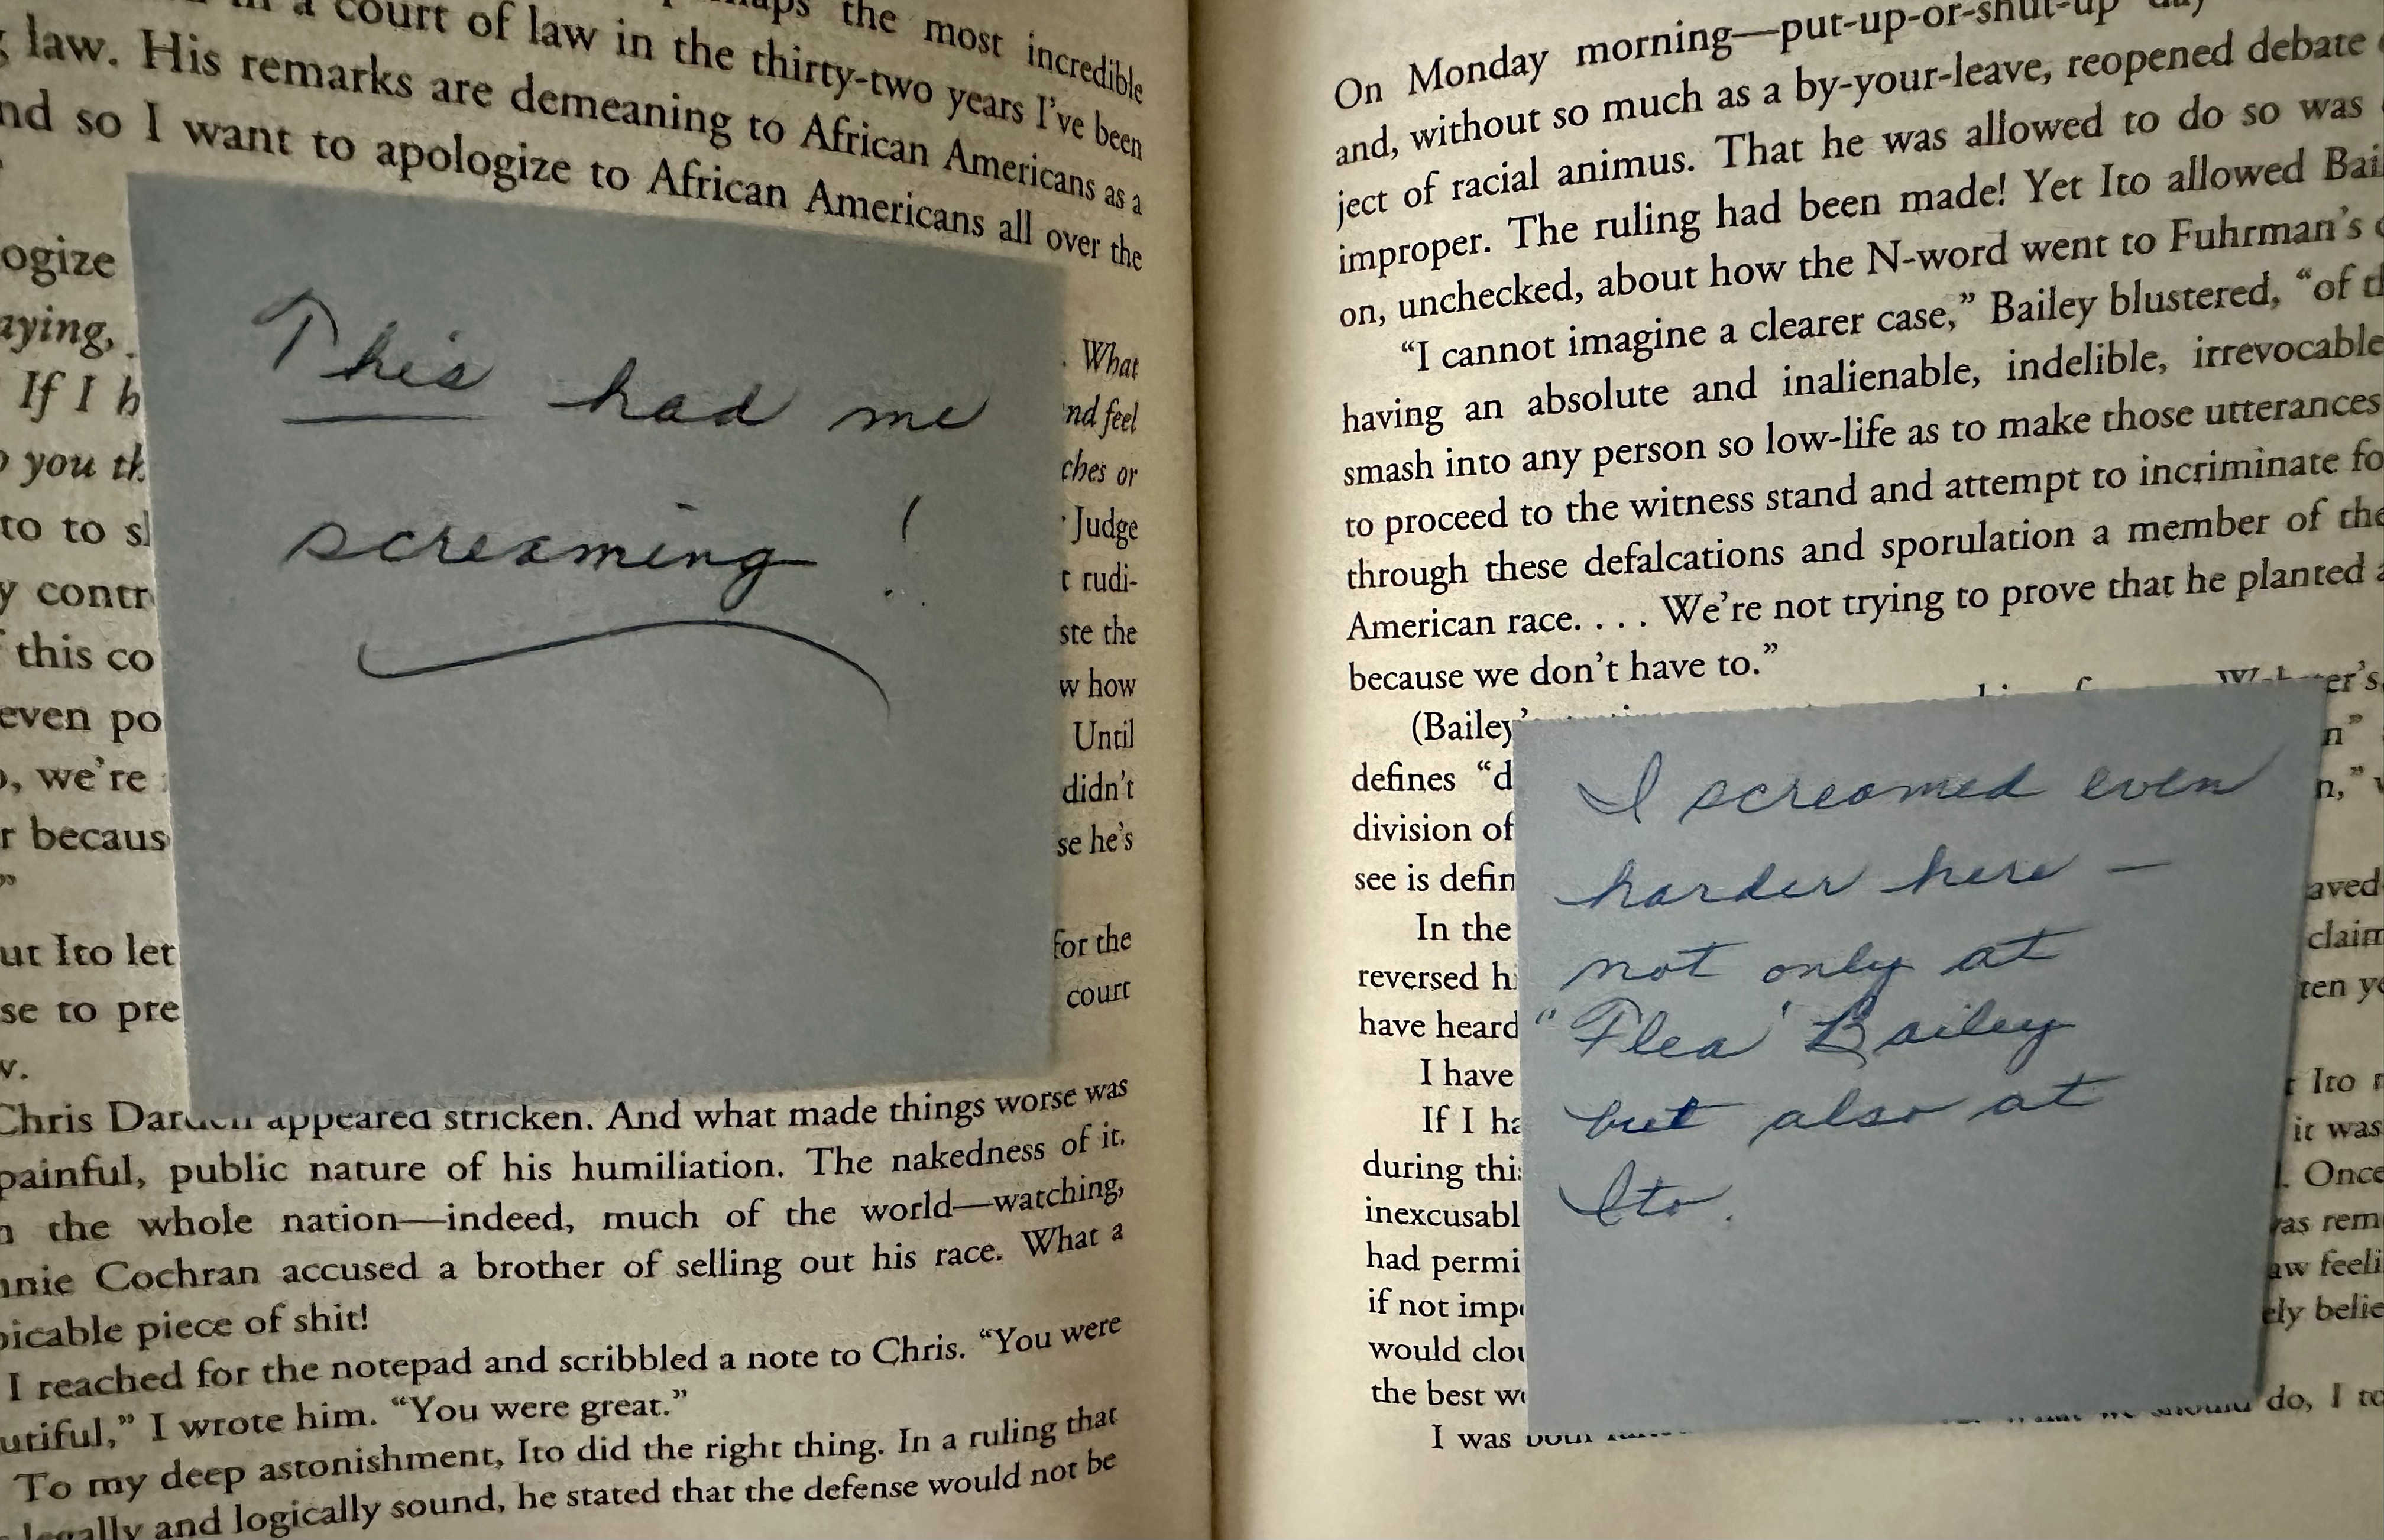 the most incredible
in a court of law in the thirty-two years I've been
law. His remarks are demeaning to African Americans as a
so I want to apologize to African Americans all over the
What
If I
feel
you
or
to to
Judge
rudi-
this co
the
even po
how
Until
we're
didn't
becaus
he's
Ito let
for the
se to pre
court
This had me
screaming!
Chris Darden appeared stricken. And what made things worse was
painful, public nature of his humiliation. The nakedness of it.
the whole nation—indeed, much of the world—watching,
nnie Cochran accused a brother of selling out his race. What a
picable piece of shit!
I reached for the notepad and scribbled a note to Chris. “You were
utiful,” I wrote him. “You were great.”
To my deep astonishment, Ito did the right thing. In a ruling that
legally and logically sound, he stated that the defense would not be
On Monday morning—put-up-or-shut-up day
and, without so much as a by-your-leave, reopened debate
ject of racial animus. That he was allowed to do so was
improper. The ruling had been made! Yet Ito allowed Bai
on, unchecked, about how the N-word went to Fuhrman's
“I cannot imagine a clearer case,” Bailey blustered, “of th
having an absolute and inalienable, indelible, irrevocable
smash into any person so low-life as to make those utterances
to proceed to the witness stand and attempt to incriminate fo
through these defalcations and sporulation a member of the
American race. . . . We're not trying to prove that he planted a
because we don't have to.”
(Bailey's
defines “d
division of
see is defin
In the
reversed hi
have heard
I have
If I ha
during this
inexcusabl
had permi
if not imp
would clou
the best wo
I was
Webster's
n”
n,”
aved
claim
ten ye
Ito
it was
Once
was rem
aw feeli
ely belie
do, I to
I screamed even
harder here —
not only at
“Flea' Bailey
but also at
Ito.